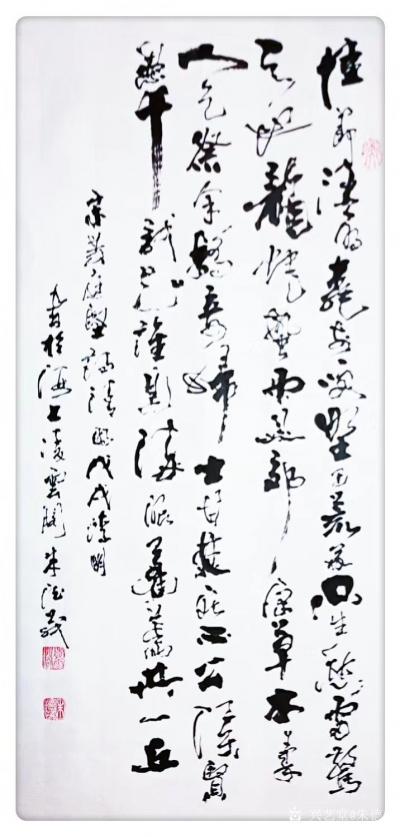 佳節清明桃李笑野田荒冢只生愁雷驚
天地龍蛇蟄雨足郊原草木柔
人乞祭余驕妾婦士甘焚死不公侯賢
愚千載知誰是滿眼蓬蒿共一丘
宋黃庭堅詩清明戊戌清明
於海上凌雲閣朱
兴艺堂@朱德